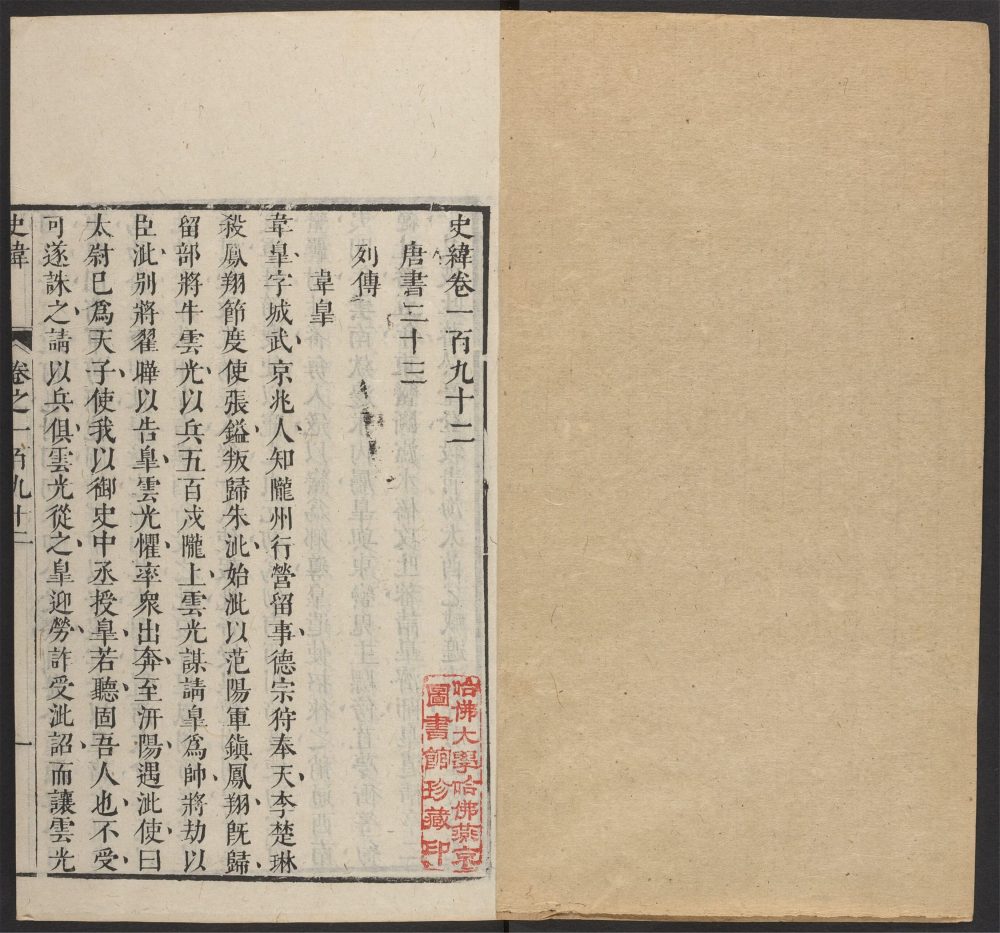 史緯卷一百九十二
唐書三十三
列傳
韋臯
韋臯字城武京兆人知隴州行營留事德宗狩奉天李楚琳
殺鳳翔節度使張鎰叛歸朱泚始泚以范陽軍鎮鳳翔旣歸
留部將牛雲光以兵五百戍隴上雲光謀請臯爲帥將劫以
臣泚别將翟曄以告臯雲光懼率衆出奔至汧陽遇泚使曰
太尉巳爲天子使我以御史中丞授臯若聽固吾人也不受
可遂誅之請以兵俱雲光從之臯迎勞詐受泚詔而讓雲光
史緯
卷之一百九十二
一
哈佛大學哈佛燕京
圖書館珍藏印